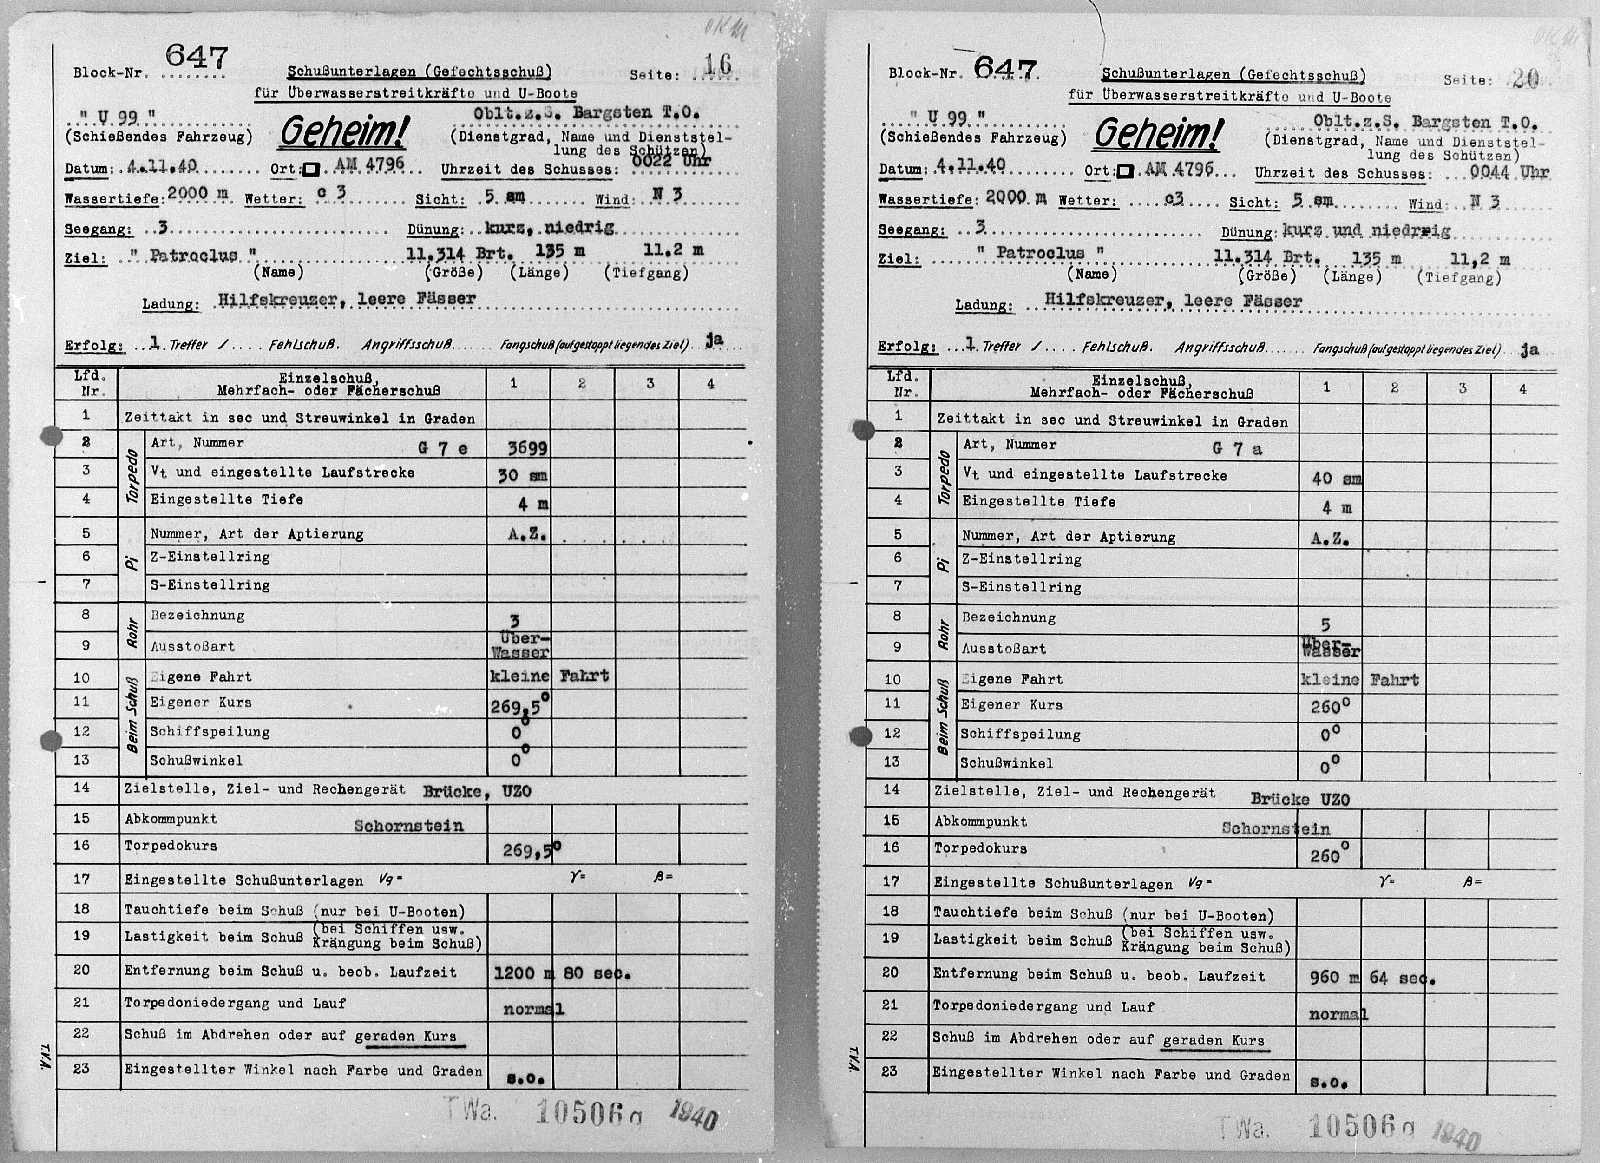 OKM
Block-Nr. 647
Schußunterlagen (Gefechtsschuß)
Seite: 16
für Überwasserstreitkräfte und U-Boote
" U 99 "
Geheim!
Oblt.z.S. Bargsten T.O.
(Schießendes Fahrzeug)
(Dienstgrad, Name und Dienststel-
lung des Schützen)
Datum: 4.11.40 Ort: AM 4796 Uhrzeit des Schusses: 0022 Uhr
Wassertiefe: 2000 m Wetter: c 3 Sicht: 5 sm Wind: N 3
Seegang: 3 Dünung: kurz, niedrig
Ziel: " Patroclus " 11.314 Brt. 135 m 11.2 m
(Name) (Größe) (Länge) (Tiefgang)
Ladung: Hilfskreuzer, leere Fässer
Erfolg: 1 Treffer / Fehlschuß. Angriffsschuß Fangschuß (aufgestoppt liegendes Ziel) ja
Lfd. Nr. Einzelschuß, Mehrfach- oder Fächerschuß 1 2 3 4
1 Zeittakt in sec und Streuwinkel in Graden
Torpedo
2 Art, Nummer G 7 e 3699
3 Vt und eingestellte Laufstrecke 30 sm
4 Eingestellte Tiefe 4 m
Pi
5 Nummer, Art der Aptierung A.Z.
6 Z-Einstellring
7 S-Einstellring
Rohr
8 Bezeichnung 3
9 Ausstoßart Über-Wasser
Beim Schuß
10 Eigene Fahrt kleine Fahrt
11 Eigener Kurs 269,5°
12 Schiffspeilung 0°
13 Schußwinkel 0°
14 Zielstelle, Ziel- und Rechengerät Brücke, UZO
15 Abkommpunkt Schornstein
16 Torpedokurs 269,5°
17 Eingestellte Schußunterlagen Vg= γ= β=
18 Tauchtiefe beim Schuß (nur bei U-Booten)
19 Lastigkeit beim Schuß (bei Schiffen usw. Krängung beim Schuß)
20 Entfernung beim Schuß u. beob. Laufzeit 1200 m 80 sec.
21 Torpedoniedergang und Lauf normal
22 Schuß im Abdrehen oder auf geraden Kurs
23 Eingestellter Winkel nach Farbe und Graden s.o.
TWa. 10506g 1940
OKM
Block-Nr. 647
Schußunterlagen (Gefechtsschuß)
Seite: 20
für Überwasserstreitkräfte und U-Boote
" U 99 "
Geheim!
Oblt.z.S. Bargsten T.O.
(Schießendes Fahrzeug)
(Dienstgrad, Name und Dienststel-
lung des Schützen)
Datum: 4.11.40 Ort: AM 4796 Uhrzeit des Schusses: 0044 Uhr
Wassertiefe: 2000 m Wetter: c3 Sicht: 5 sm Wind: N 3
Seegang: 3 Dünung: kurz und niedrig
Ziel: " Patroclus " 11.314 Brt. 135 m 11,2 m
(Name) (Größe) (Länge) (Tiefgang)
Ladung: Hilfskreuzer, leere Fässer
Erfolg: 1 Treffer / Fehlschuß. Angriffsschuß Fangschuß (aufgestoppt liegendes Ziel) ja
Lfd. Nr. Einzelschuß, Mehrfach- oder Fächerschuß 1 2 3 4
1 Zeittakt in sec und Streuwinkel in Graden
Torpedo
2 Art, Nummer G 7 a
3 Vt und eingestellte Laufstrecke 40 sm
4 Eingestellte Tiefe 4 m
Pi
5 Nummer, Art der Aptierung A.Z.
6 Z-Einstellring
7 S-Einstellring
Rohr
8 Bezeichnung 5
9 Ausstoßart Über-Wasser
Beim Schuß
10 Eigene Fahrt kleine Fahrt
11 Eigener Kurs 260°
12 Schiffspeilung 0°
13 Schußwinkel 0°
14 Zielstelle, Ziel- und Rechengerät Brücke UZO
15 Abkommpunkt Schornstein
16 Torpedokurs 260°
17 Eingestellte Schußunterlagen Vg= γ= β=
18 Tauchtiefe beim Schuß (nur bei U-Booten)
19 Lastigkeit beim Schuß (bei Schiffen usw. Krängung beim Schuß)
20 Entfernung beim Schuß u. beob. Laufzeit 960 m 64 sec.
21 Torpedoniedergang und Lauf normal
22 Schuß im Abdrehen oder auf geraden Kurs
23 Eingestellter Winkel nach Farbe und Graden s.o.
TWa. 10506g 1940